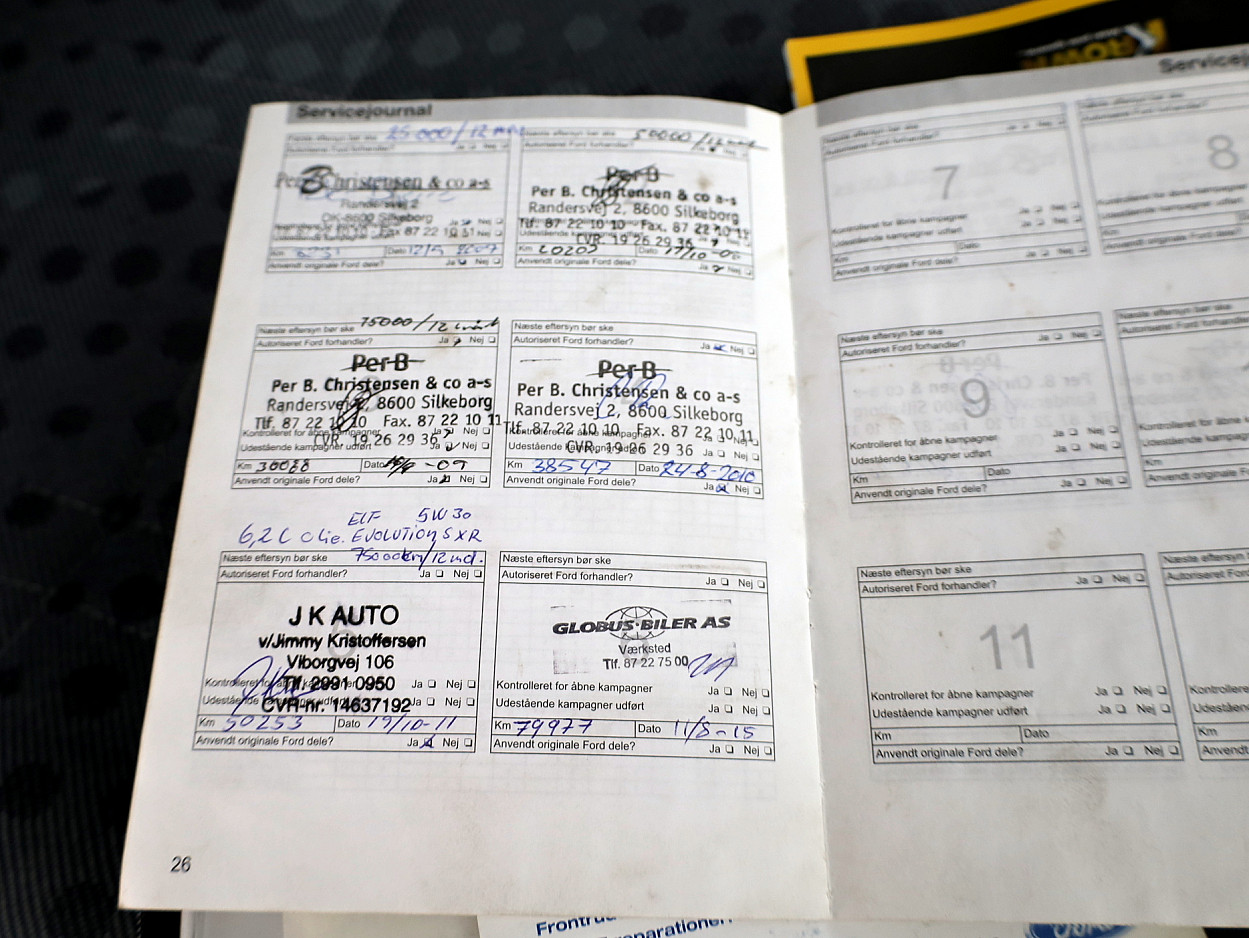 Servicejournal
Næste eftersyn bør ske 25000/12
Autoriseret Ford forhandler? Ja Nej
Per B Christensen & co a-s
Randersvej 2
DK-8600 Silkeborg
Ja Nej
Km Dato 12/9
Anvendt originale Ford dele? Ja Nej
Næste eftersyn bør ske 50000/12
Autoriseret Ford forhandler? Ja Nej
Per B
Per B. Christensen & co a-s
Randersvej 2, 8600 Silkeborg
Tlf. 87 22 10 10 . Fax. 87 22 10 11
Udestående kampagner udført
CVR. 19 26 29 36
Km Dato
Anvendt originale Ford dele? Ja Nej
Næste eftersyn bør ske 75000/12
Autoriseret Ford forhandler? Ja Nej
Per B
Per B. Christensen & co a-s
Randersvej 2, 8600 Silkeborg
Tlf. 87 22 10 10 Fax. 87 22 10 11
Kontrolleret for åbne kampagner Ja Nej
CVR. 19 26 29 36
Udestående kampagner udført Ja Nej
Km Dato
Anvendt originale Ford dele? Ja Nej
Næste eftersyn bør ske
Autoriseret Ford forhandler? Ja Nej
Per B
Per B. Christensen & co a-s
Randersvej 2, 8600 Silkeborg
Tlf. 87 22 10 10 . Fax. 87 22 10 11
Kontrolleret for åbne kampagner Ja Nej
CVR. 19 26 29 36
Udestående kampagner udført Ja Nej
Km 38547 Dato 24-8-2010
Anvendt originale Ford dele? Ja Nej
ELF 5W30
6,2 L Olie. EVOLUTION SXR
Næste eftersyn bør ske 75000km/12md.
Autoriseret Ford forhandler? Ja Nej
J K AUTO
v/Jimmy Kristoffersen
Viborgvej 106
Tlf. 2991 0950
Kontrolleret for åbne kampagner Ja Nej
CVR-nr. 14637192
Udestående kampagner udført Ja Nej
Km 50253 Dato 19/10-11
Anvendt originale Ford dele? Ja Nej
Næste eftersyn bør ske
Autoriseret Ford forhandler? Ja Nej
GLOBUS·BILER AS
Værksted
Tlf. 87 22 75 00
Kontrolleret for åbne kampagner Ja Nej
Udestående kampagner udført Ja Nej
Km 79977 Dato 11/8-15
Anvendt originale Ford dele? Ja Nej
26
Servicejo
Næste eftersyn bør ske
Autoriseret Ford forhandler? Ja Nej
7
Kontrolleret for åbne kampagner Ja Nej
Udestående kampagner udført Ja Nej
Km Dato
Anvendt originale Ford dele? Ja Nej
Næste eftersyn bør ske
Autoriseret Ford forhandler?
8
Kontrolleret for åbne kampagner
Udestående kampagner udført
Km
Anvendt originale Ford dele?
Næste eftersyn bør ske
Autoriseret Ford forhandler? Ja Nej
9
Kontrolleret for åbne kampagner Ja Nej
Udestående kampagner udført Ja Nej
Km Dato
Anvendt originale Ford dele? Ja Nej
Næste eftersyn bør ske
Autoriseret Ford forhandler?
Kontrolleret for åbne
Udestående kampagner
Km
Anvendt originale Ford
Næste eftersyn bør ske
Autoriseret Ford forhandler? Ja Nej
11
Kontrolleret for åbne kampagner Ja Nej
Udestående kampagner udført Ja Nej
Km Dato
Anvendt originale Ford dele? Ja Nej
Næste eftersyn bør
Autoriseret Ford
Kontrolleret for
Udestående
Km
Anvendt